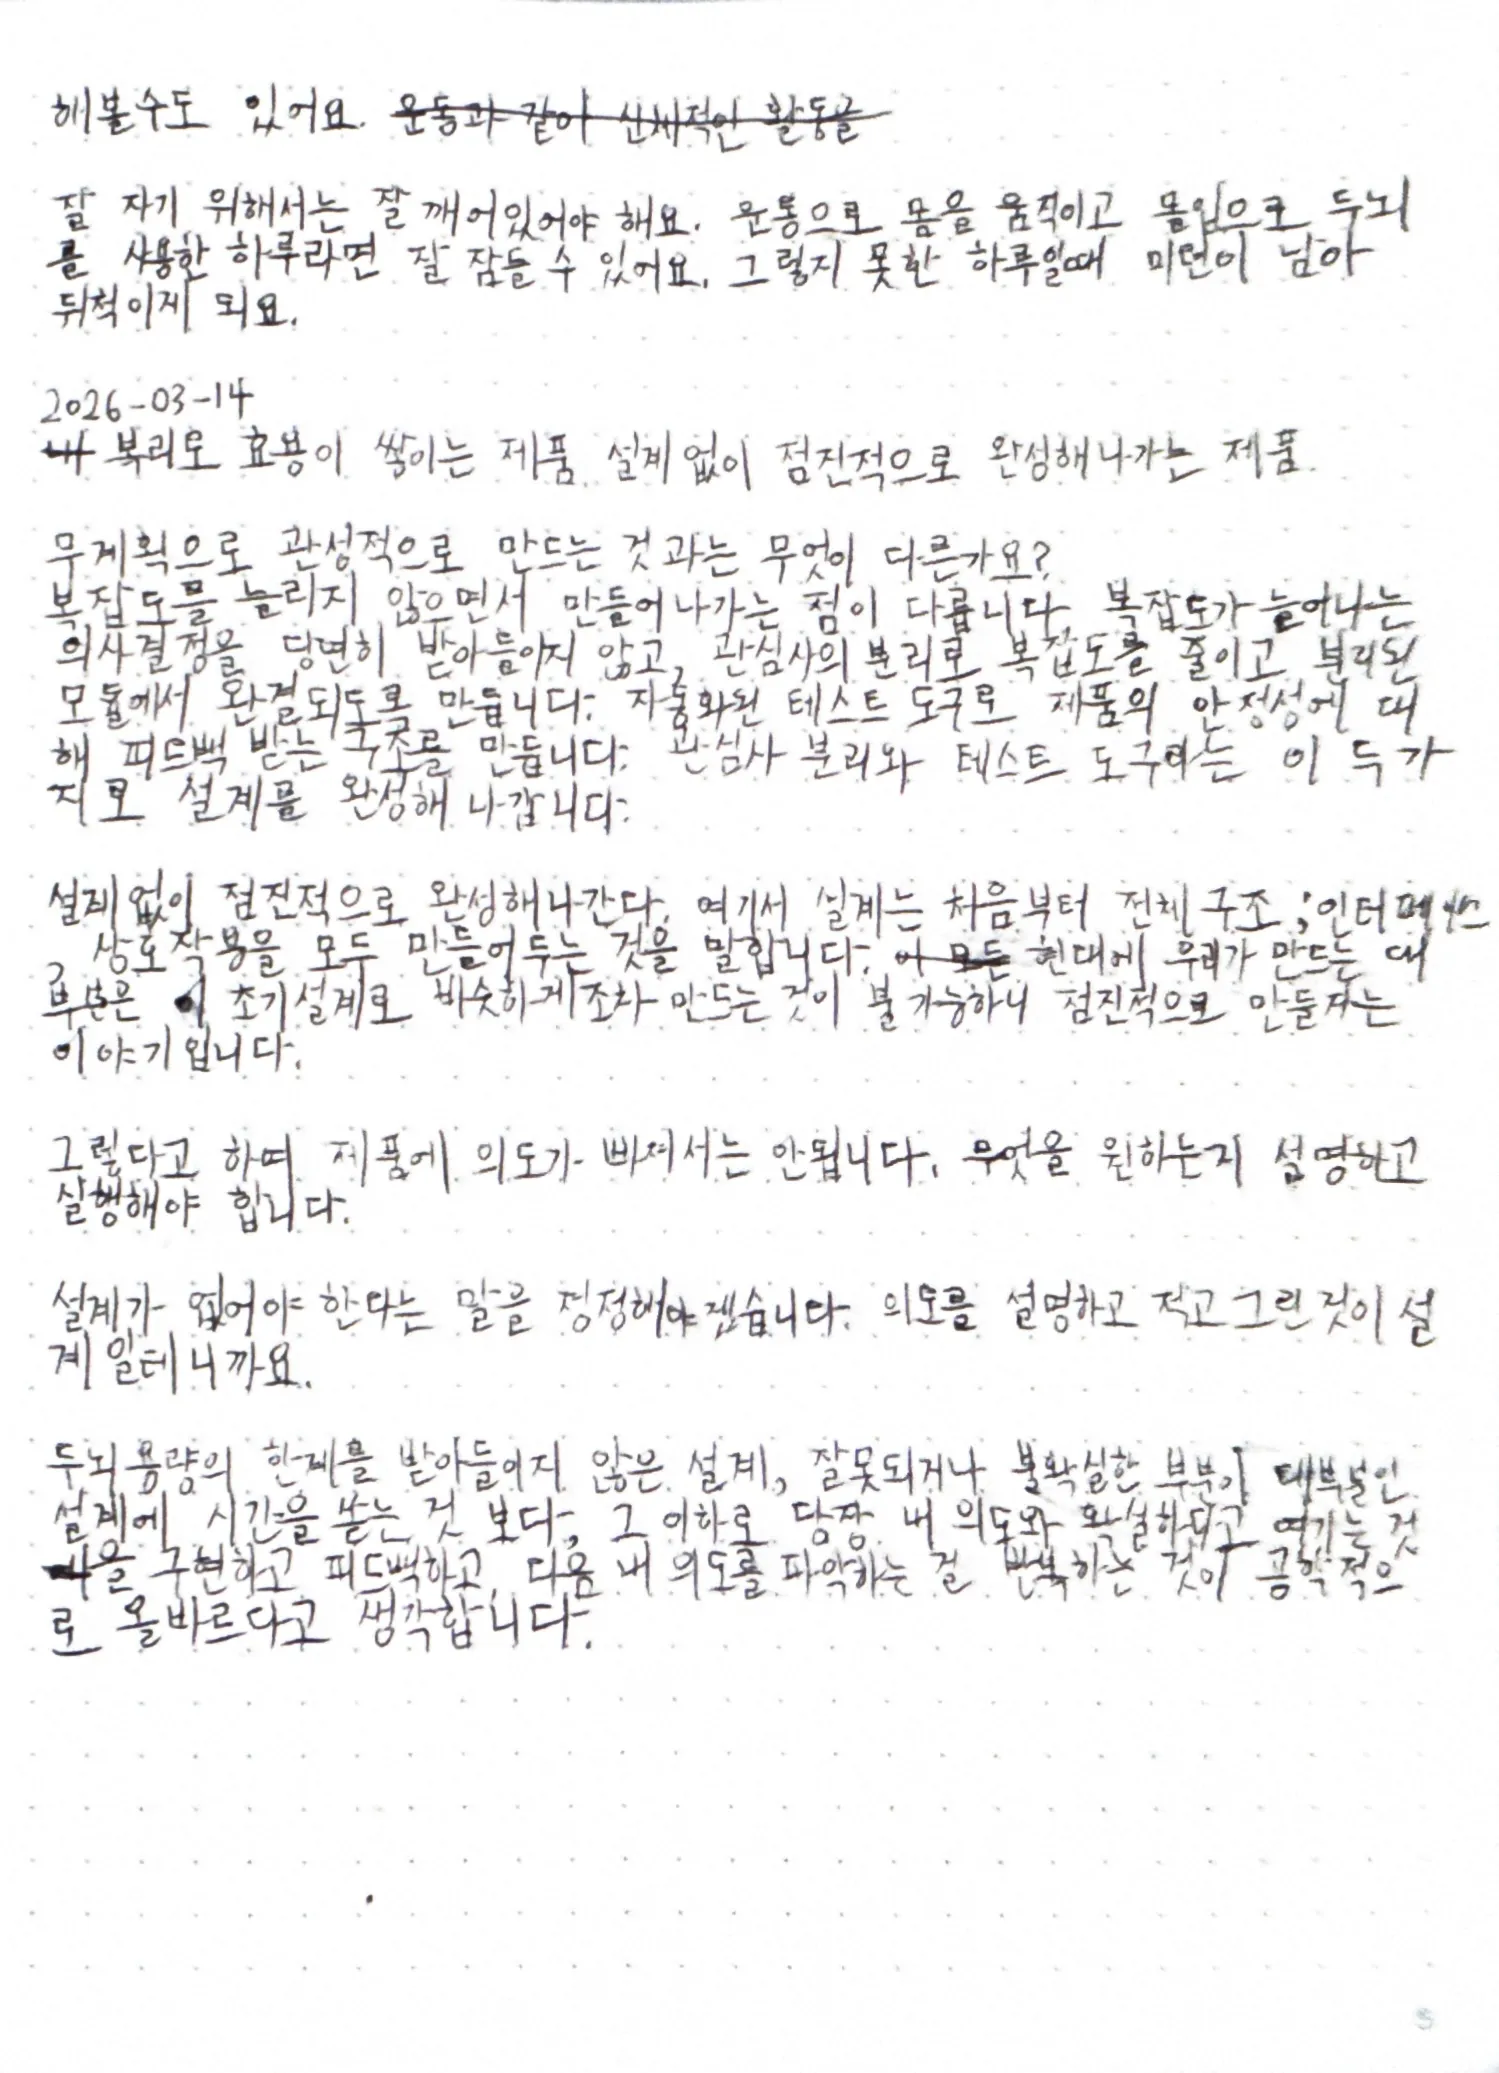 해볼수도 있어요. 운동과 같이 신체적인 활동을
잘 자기 위해서는 잘 깨어있어야 해요. 운동으로 몸을 움직이고 몰입으로 두뇌
를 사용한 하루라면 잘 잠들 수 있어요. 그렇지 못한 하루일때 미련이 남아
뒤척이게 되요.
2026-03-14
복리로 효용이 쌓이는 제품. 설계 없이 점진적으로 완성해나가는 제품.
무계획으로 관성적으로 만드는 것과는 무엇이 다른가요?
복잡도를 늘리지 않으면서 만들어나가는 점이 다릅니다. 복잡도가 늘어나는
의사결정을 당연히 받아들이지 않고, 관심사의 분리로 복잡도를 줄이고 분리된
모듈에서 완결되도록 만듭니다. 자동화된 테스트 도구로 제품의 안정성에 대
해 피드백 받는 구조를 만듭니다. 관심사 분리와 테스트 도구라는 이 두가
지로 설계를 완성해 나갑니다.
설계없이 점진적으로 완성해나간다. 여기서 설계는 처음부터 전체 구조; 인터페이스
, 상호작용을 모두 만들어두는 것을 말합니다. 아 모든 현대에 우리가 만드는 대
부분은 초기설계로 비슷하게조차 만드는 것이 불가능하니 점진적으로 만들자는
이야기입니다.
그렇다고 하며 제품에 의도가 빠져서는 안됩니다. 무엇을 원하는지 설명하고
실행해야 합니다.
설계가 없어야 한다는 말을 정정해야겠습니다. 의도를 설명하고 적고 그린것이 설
계일테니까요.
두뇌용량의 한계를 받아들이지 않은 설계, 잘못되거나 불확실한 부분이 대부분인
설계에 시간을 쏟는 것 보다, 그 이하로 당장 내 의도와 확실하다고 여기는 것
을 구현하고 피드백하고, 다음 내 의도를 파악하는 걸 반복하는 것이 공학적으
로 올바르다고 생각합니다.